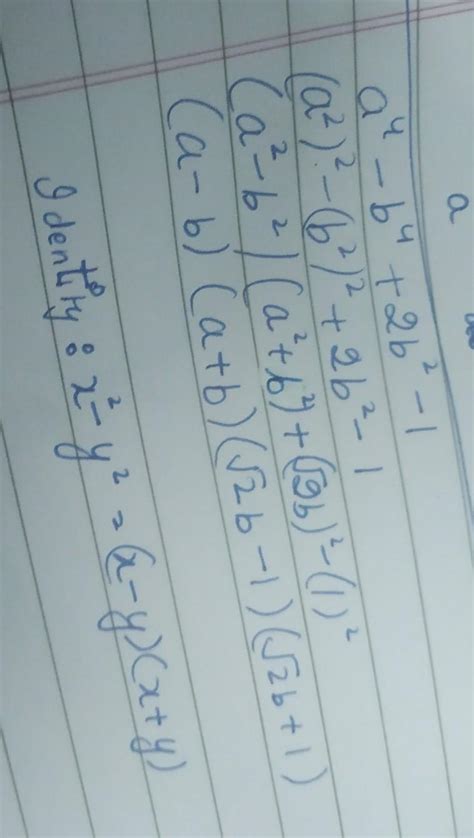 a
a⁴ - b⁴ + 2b² - 1
(a²)² - (b²)² + 2b² - 1
(a² - b²) (a² + b²) + (√2b)² - (1)²
(a - b) (a + b) (√2b - 1) (√2b + 1)
Identity : x² - y² = (x - y) (x + y)